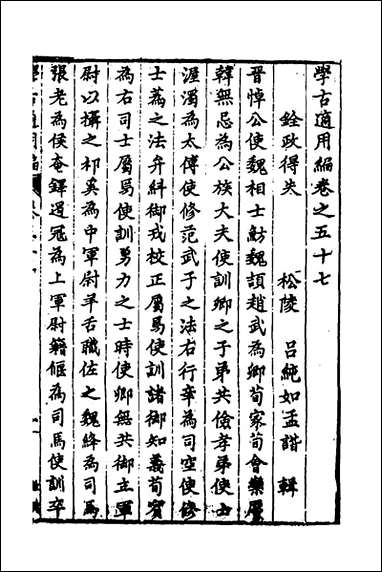 學古適用編卷之五十七
銓政得失　松陵　呂純如孟諧　輯
晉悼公使魏相士魴魏頡趙武為卿荀家荀會欒黶
韓無忌為公族大夫使訓卿之子弟共儉孝弟使士
渥濁為太傅使修范武子之法右行辛為司空使修
士蒍之法弁糾御戎校正屬焉使訓諸御知義荀賓
為右司士屬焉使訓勇力之士時使卿無共御立軍
尉以攝之祁奚為中軍尉羊舌職佐之魏絳為司馬
張老為侯奄鐸遏冦為上軍尉籍偃為司馬使訓卒